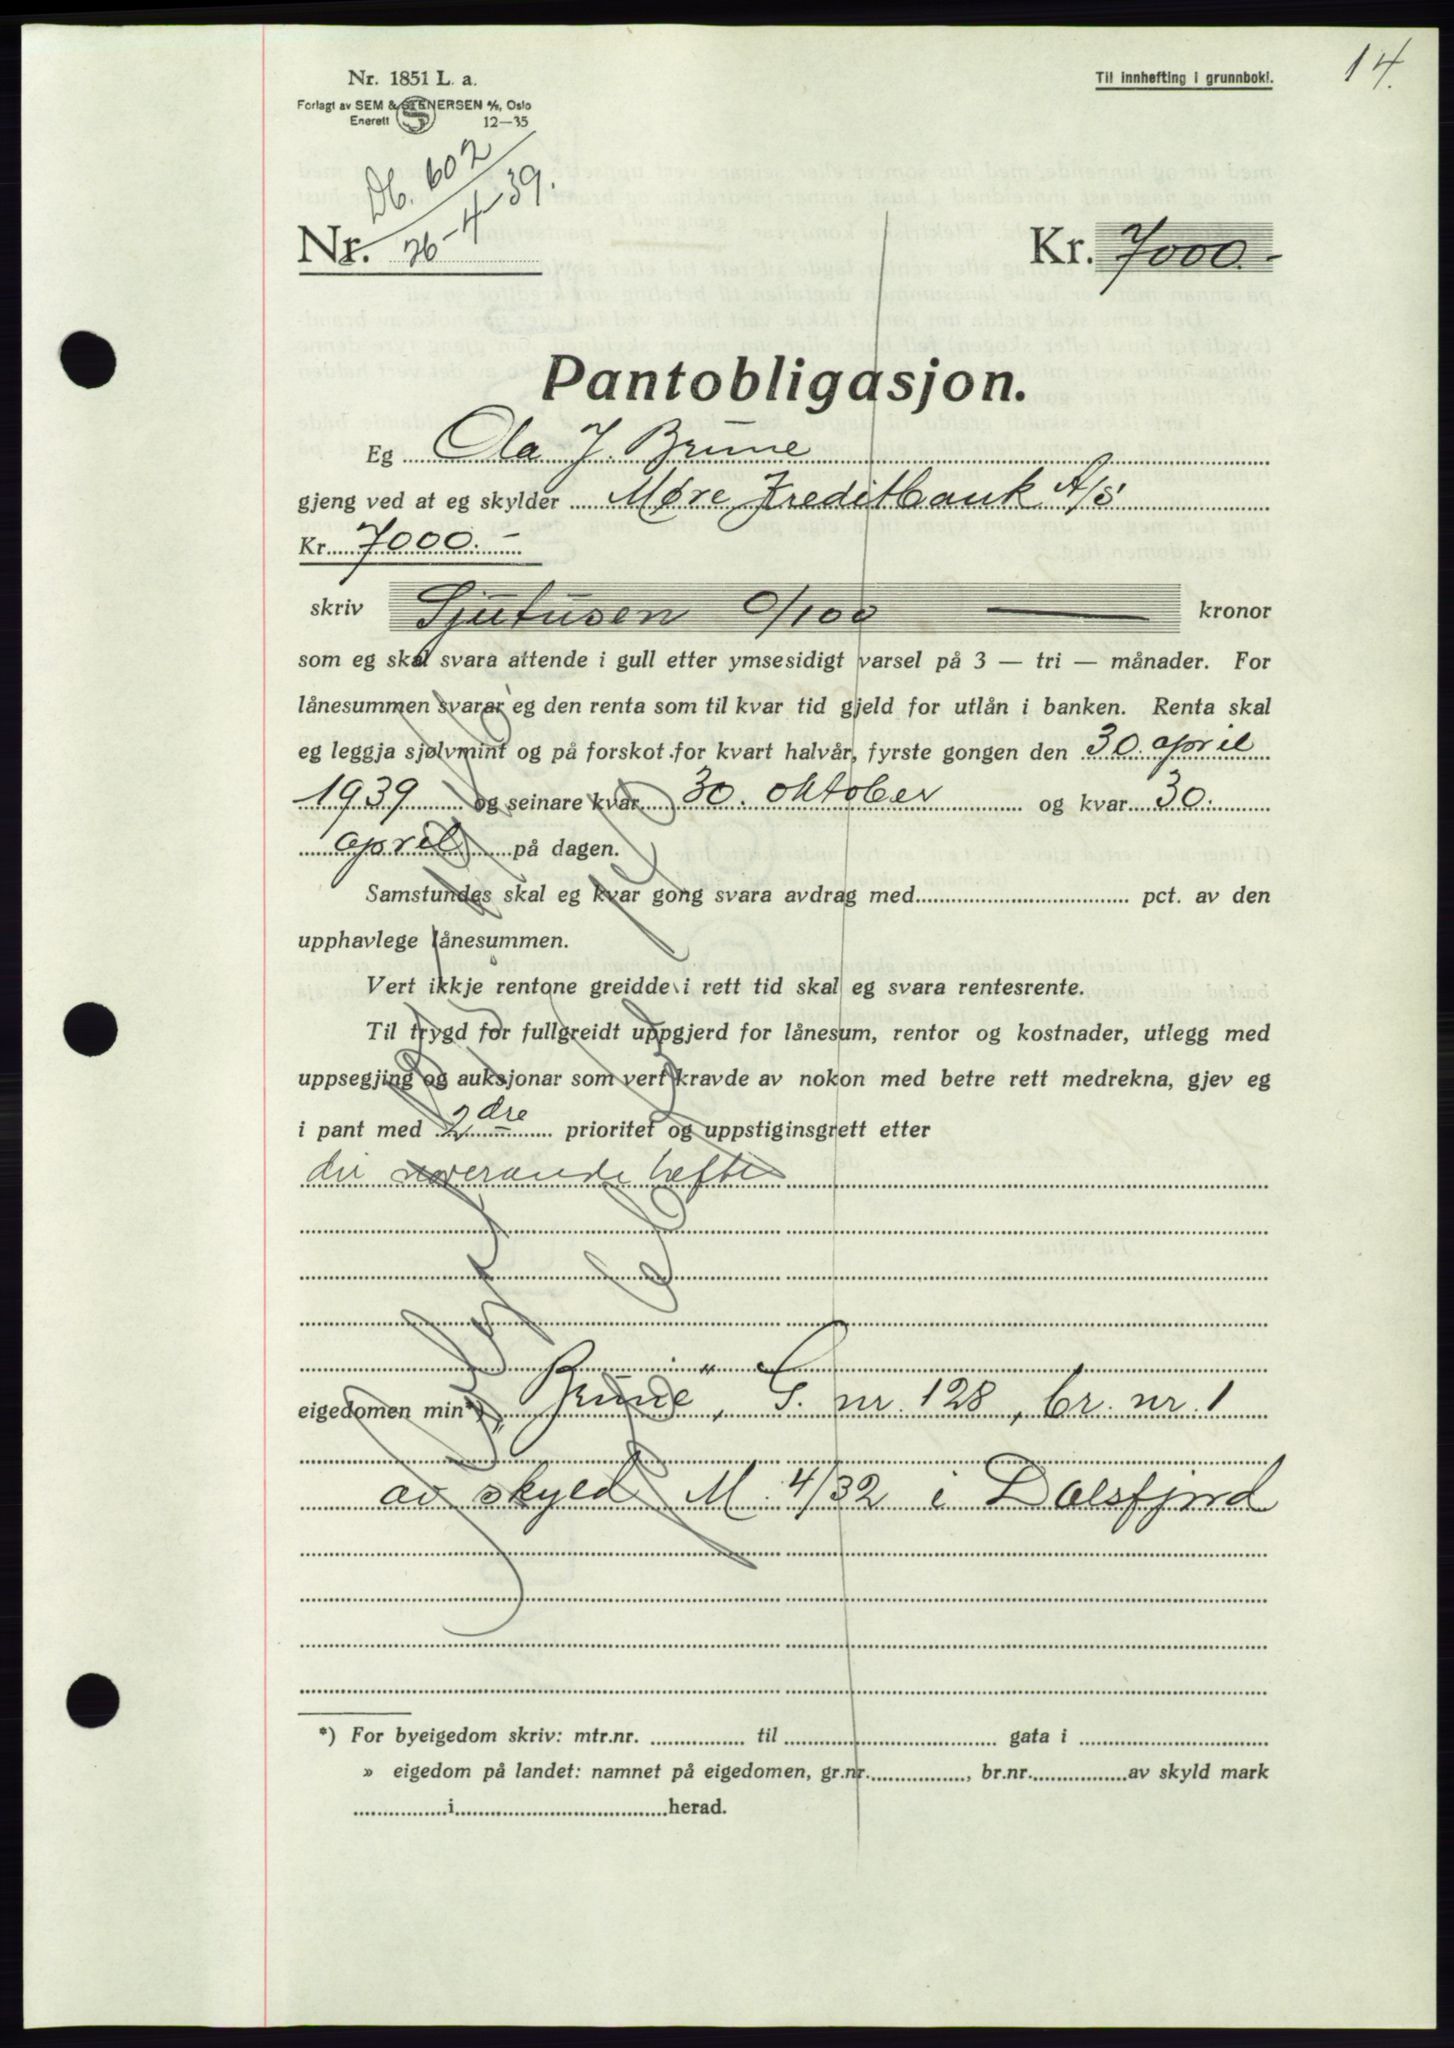 14.
Nr. 1851 L. a.
Til innhefting i grunnboki.
Forlagt av SEM & STENERSEN A/S, Oslo
Enerett 12—35
Db. 602
Nr. 26-4-39.
Kr. 7000.-
Pantobligasjon.
Eg Ola J. Brune
gjeng ved at eg skylder Møre Kreditbank A/S
Kr. 7000.-
skriv Sjutusen 0/100 kronor
som eg skal svara attende i gull etter ymsesidigt varsel på 3 — tri — månader. For
lånesummen svarar eg den renta som til kvar tid gjeld for utlån i banken. Renta skal
eg leggja sjølvmint og på forskot for kvart halvår, fyrste gongen den 30. april
1939 og seinare kvar 30. oktober og kvar 30.
april på dagen.
Samstundes skal eg kvar gong svara avdrag med pct. av den
upphavlege lånesummen.
Vert ikkje rentone greidde i rett tid skal eg svara rentesrente.
Til trygd for fullgreidt uppgjerd for lånesum, rentor og kostnader, utlegg med
uppsegjing og auksjonar som vert kravde av nokon med betre rett medrekna, gjev eg
i pant med 2dre prioritet og uppstiginsgrett etter
dei noverande hefte
eigedomen min*) „Brune", G. nr. 128, br. nr. 1
av skyld M. 4/32 i Dalsfjord
*) For byeigedom skriv: mtr.nr. til gata i
» eigedom på landet: namnet på eigedomen, gr.nr. , br.nr. av skyld mark
i herad.